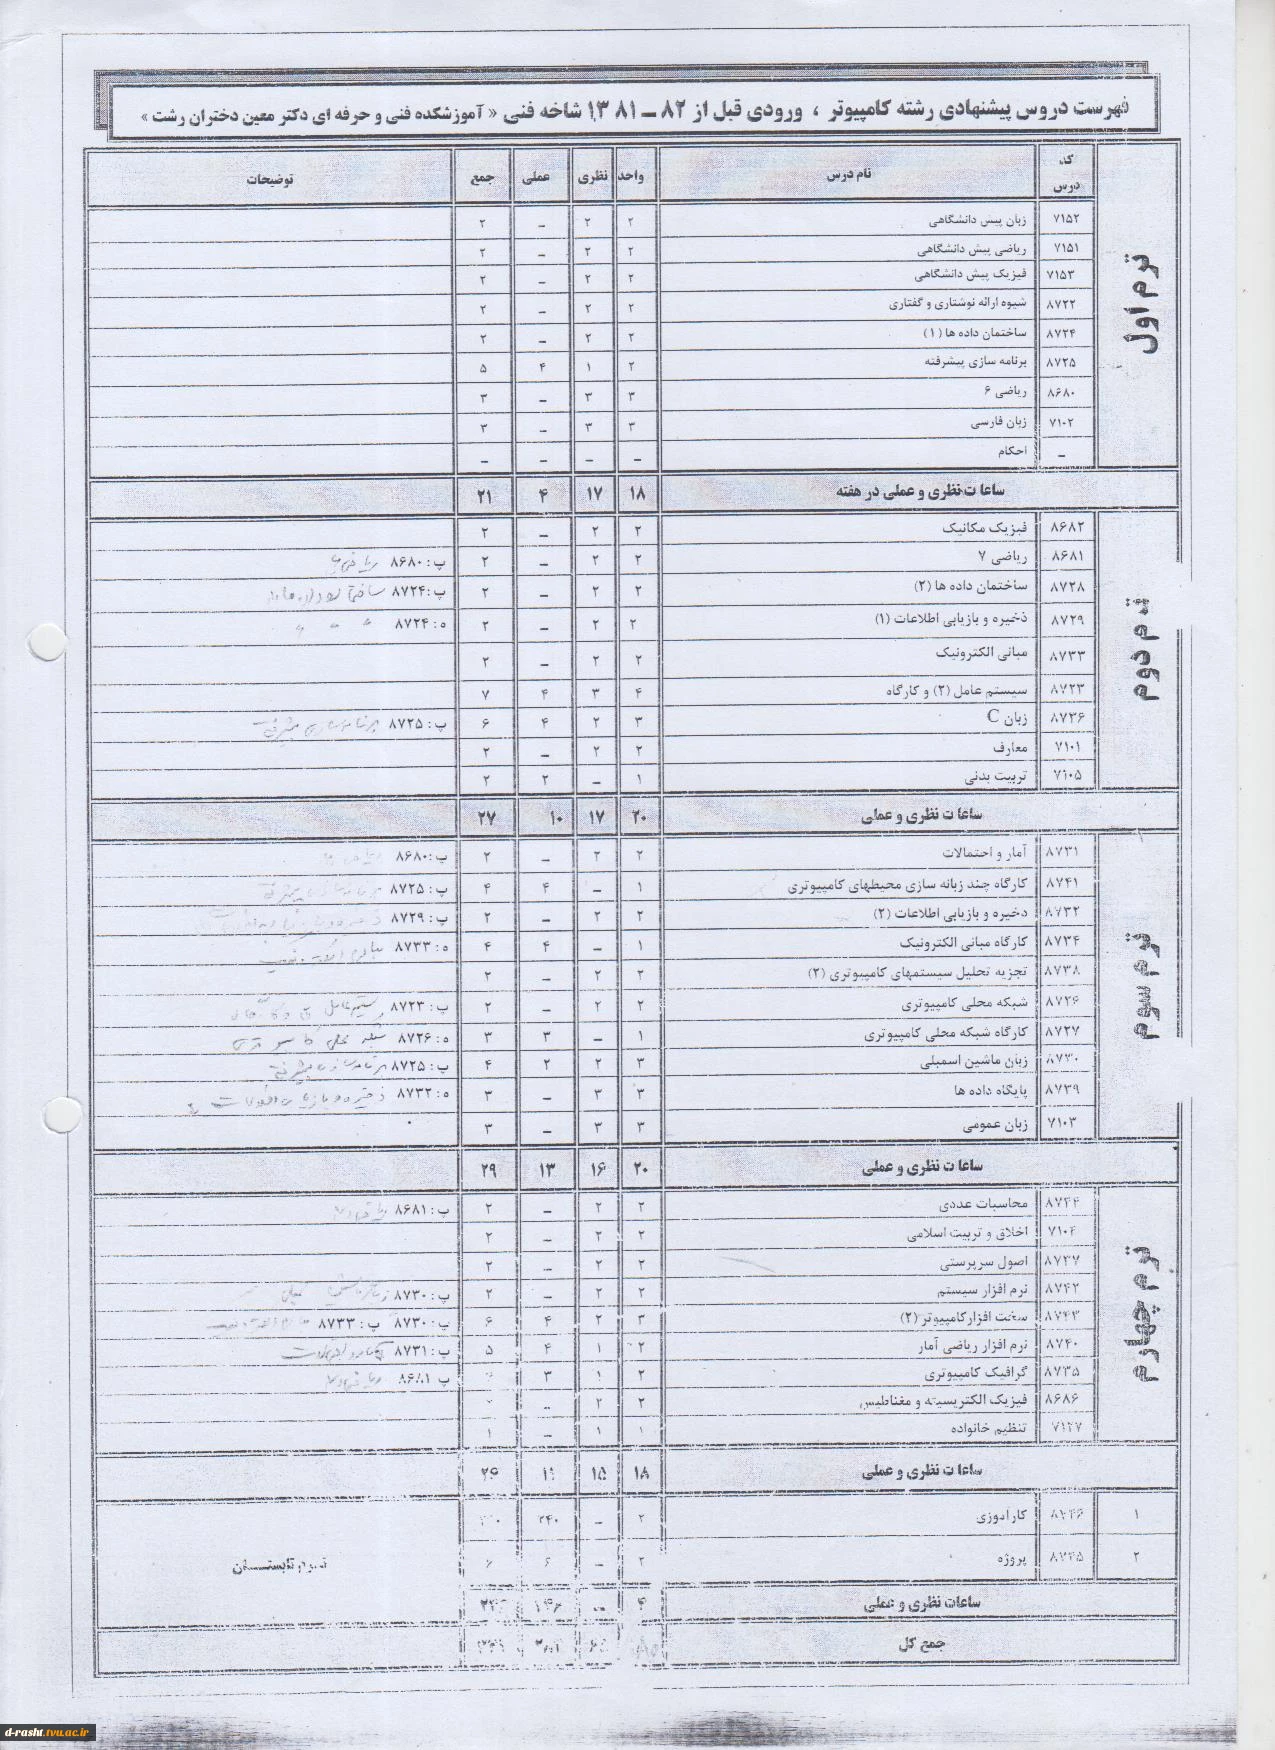 فهرست دروس پیشنهادی رشته کامپیوتر ، ورودی قبل از ۸۲ – ۱۳۸۱ شاخه فنی « آموزشکده فنی و حرفه ای دکتر معین دختران رشت »
کد درس نام درس واحد نظری عملی جمع توضیحات
ترم اول
۷۱۵۲ زبان پیش دانشگاهی ۲ ۲ – ۲
۷۱۵۱ ریاضی پیش دانشگاهی ۲ ۲ – ۲
۷۱۵۳ فیزیک پیش دانشگاهی ۲ ۲ – ۲
۸۷۲۲ شیوه ارائه نوشتاری و گفتاری ۲ ۲ – ۲
۸۷۲۴ ساختمان داده ها (۱) ۲ ۲ – ۲
۸۷۲۵ برنامه سازی پیشرفته ۲ ۱ ۴ ۵
۸۶۸۰ ریاضی ۶ ۳ ۳ – ۳
۷۱۰۲ زبان فارسی ۳ ۳ – ۳
– احکام – – – –
ساعات نظری و عملی در هفته ۱۸ ۱۷ ۴ ۲۱
ترم دوم
۸۶۸۲ فیزیک مکانیک ۲ ۲ – ۲
۸۶۸۱ ریاضی ۷ ۲ ۲ – ۲ پ: ۸۶۸۰
۸۷۲۸ ساختمان داده ها (۲) ۲ ۲ – ۲ پ: ۸۷۲۴
۸۷۲۹ ذخیره و بازیابی اطلاعات (۱) ۲ ۲ – ۲ ه: ۸۷۲۴
۸۷۳۳ مبانی الکترونیک ۲ ۲ – ۲
۸۷۲۳ سیستم عامل (۲) و کارگاه ۴ ۳ ۴ ۷
۸۷۳۶ زبان C ۳ ۲ ۴ ۶ پ: ۸۷۲۵ برنامه سازی پیشرفته
۷۱۰۱ معارف ۲ ۲ – ۲
۷۱۰۵ تربیت بدنی ۱ – ۲ ۲
ساعات نظری و عملی ۲۰ ۱۷ ۱۰ ۲۷
ترم سوم
۸۷۳۱ آمار و احتمالات ۲ ۲ – ۲ پ: ۸۶۸۰
۸۷۴۱ کارگاه چند زبانه سازی محیطهای کامپیوتری ۱ – ۴ ۴ پ: ۸۷۲۵ برنامه سازی پیشرفته
۸۷۳۲ ذخیره و بازیابی اطلاعات (۲) ۲ ۲ – ۲ پ: ۸۷۲۹
۸۷۳۴ کارگاه مبانی الکترونیک ۱ – ۴ ۴ ه: ۸۷۳۳ مبانی الکترونیک
۸۷۳۸ تجزیه تحلیل سیستمهای کامپیوتری (۲) ۲ ۲ – ۲
۸۷۲۶ شبکه محلی کامپیوتری ۲ ۲ – ۲ پ: ۸۷۲۳
۸۷۲۷ کارگاه شبکه محلی کامپیوتری ۱ – ۳ ۳ ه: ۸۷۲۶ شبکه محلی کامپیوتری
۸۷۳۰ زبان ماشین اسمبلی ۳ ۲ ۲ ۴ پ: ۸۷۲۵ برنامه سازی پیشرفته
۸۷۳۹ پایگاه داده ها ۳ ۳ – ۳ ه: ۸۷۳۲ ذخیره و بازیابی اطلاعات ۲
۷۱۰۳ زبان عمومی ۳ ۳ – ۳
ساعات نظری و عملی ۲۰ ۱۶ ۱۳ ۲۹
ترم چهارم
۸۷۴۴ محاسبات عددی ۲ ۲ – ۲ پ: ۸۶۸۱
۷۱۰۴ اخلاق و تربیت اسلامی ۲ ۲ – ۲
۸۷۳۷ اصول سرپرستی ۲ ۲ – ۲
۸۷۴۲ نرم افزار سیستم ۲ ۲ – ۲ پ: ۸۷۳۰
۸۷۴۳ سخت افزار کامپیوتر (۲) ۳ ۲ ۴ ۶ پ: ۸۷۳۰ پ: ۸۷۳۳
۸۷۴۰ نرم افزار ریاضی آمار ۲ ۱ ۴ ۵ پ: ۸۷۳۱
۸۷۳۵ گرافیک کامپیوتری ۲ ۱ ۳ پ ۸۶۸۱
۸۶۸۶ فیزیک الکتریسیته و مغناطیس ۲ ۲ –
۷۱۲۷ تنظیم خانواده ۱ ۱ – ۱
ساعات نظری و عملی ۱۸ ۱۵ ۱۱ ۲۶
۱ ۸۷۴۶ کارآموزی ۲ – ۲۴۰
۲ ۸۷۴۵ پروژه ۲ – ۶ ۶
تابستان
ساعات نظری و عملی ۴ –
جمع کل
d-rasht.tvu.ac.ir